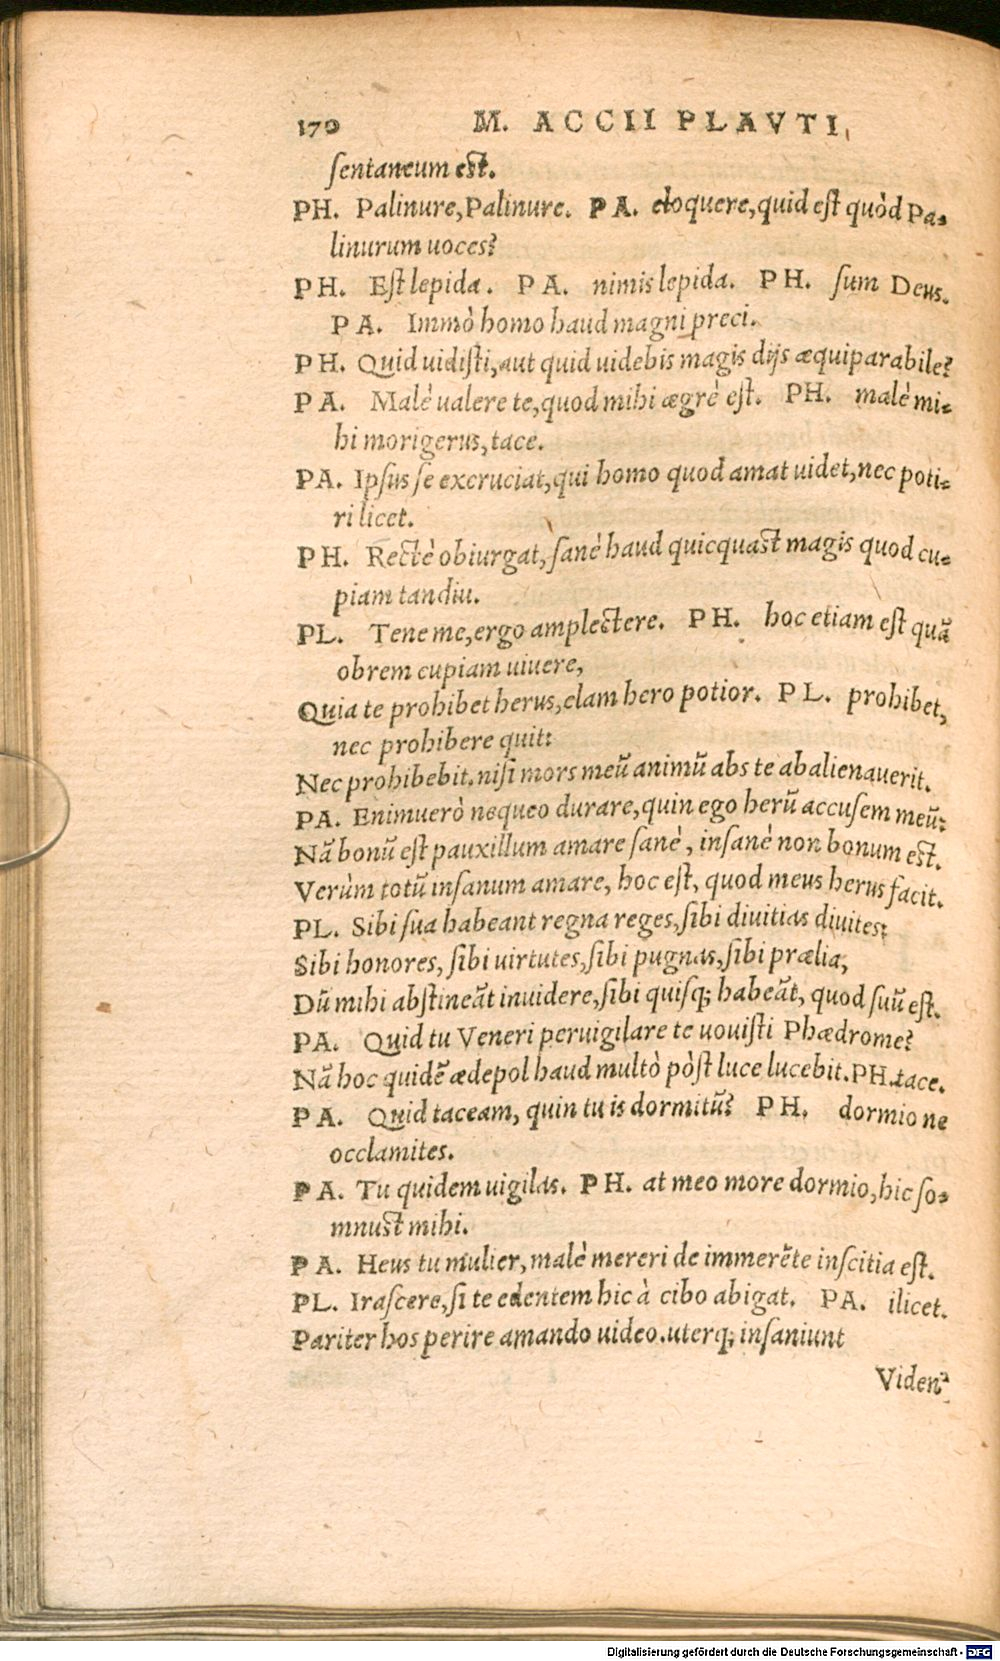 170 M. ACCII PLAVTI,
sentaneum est.
PH. Palinure, Palinure. PA. eloquere, quid est quòd Pa-
linurum uoces?
PH. Est lepida. PA. nimis lepida. PH. sum Deus.
PA. Immò homo haud magni preci.
PH. Quid uidisti, aut quid uidebis magis dijs æquiparabile?
PA. Malè ualere te, quod mihi ægrè est. PH. malè mi-
hi morigerus, tace.
PA. Ipsus se excruciat, qui homo quod amat uidet, nec poti-
ri licet.
PH. Rectè obiurgat, sanè haud quicquast magis quod cu-
piam tandiu.
PL. Tene me, ergo amplectere. PH. hoc etiam est quã
obrem cupiam uiuere,
Quia te prohibet herus, clam hero potior. PL. prohibet,
nec prohibere quit:
Nec prohibebit. nisi mors meũ animũ abs te abalienauerit.
PA. Enimuerò nequeo durare, quin ego herũ accusem meũ:
Nã bonũ est pauxillum amare sanè, insanè non bonum est.
Verùm totũ insanum amare, hoc est, quod meus herus facit.
PL. Sibi sua habeant regna reges, sibi diuitias diuites:
Sibi honores, sibi uirtutes, sibi pugnas, sibi prælia,
Dũ mihi abstineãt inuidere, sibi quisq; habeãt, quod suũ est.
PA. Quid tu Veneri peruigilare te uouisti Phædrome?
Nã hoc quidẽ ædepol haud multò pòst luce lucebit. PH. tace.
PA. Quid taceam, quin tu is dormitũ? PH. dormio ne
occlamites.
PA. Tu quidem uigilas. PH. at meo more dormio, hic so-
mnust mihi.
PA. Heus tu mulier, malè mereri de immerẽte inscitia est.
PL. Irascere, si te edentem hic à cibo abigat. PA. ilicet.
Pariter hos perire amando uideo. uterq; insaniunt
Viden'
Digitalisierung gefördert durch die Deutsche Forschungsgemeinschaft - DFG